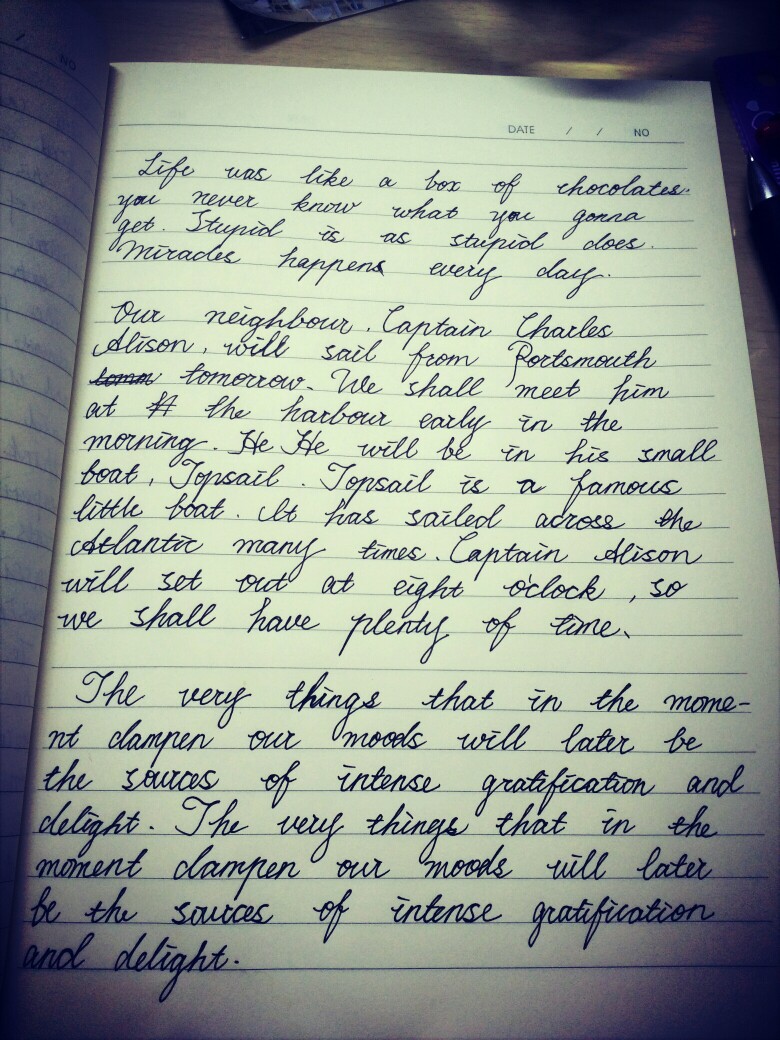 DATE / / NO
Life was like a box of chocolates.
you never know what you gonna
get. Stupid is as stupid does.
Miracles happens every day.
Our neighbour. Captain Charles
Alison, will sail from Portsmouth
tomm tomorrow. We shall meet him
at H the harbour early in the
morning. He He will be in his small
boat, Topsail. Topsail is a famous
little boat. It has sailed across the
Atlantic many times. Captain Alison
will set out at eight o'clock, so
we shall have plenty of time.
The very things that in the mome-
nt dampen our moods will later be
the sources of intense gratification and
delight. The very things that in the
moment dampen our moods will later
be the sources of intense gratification
and delight.